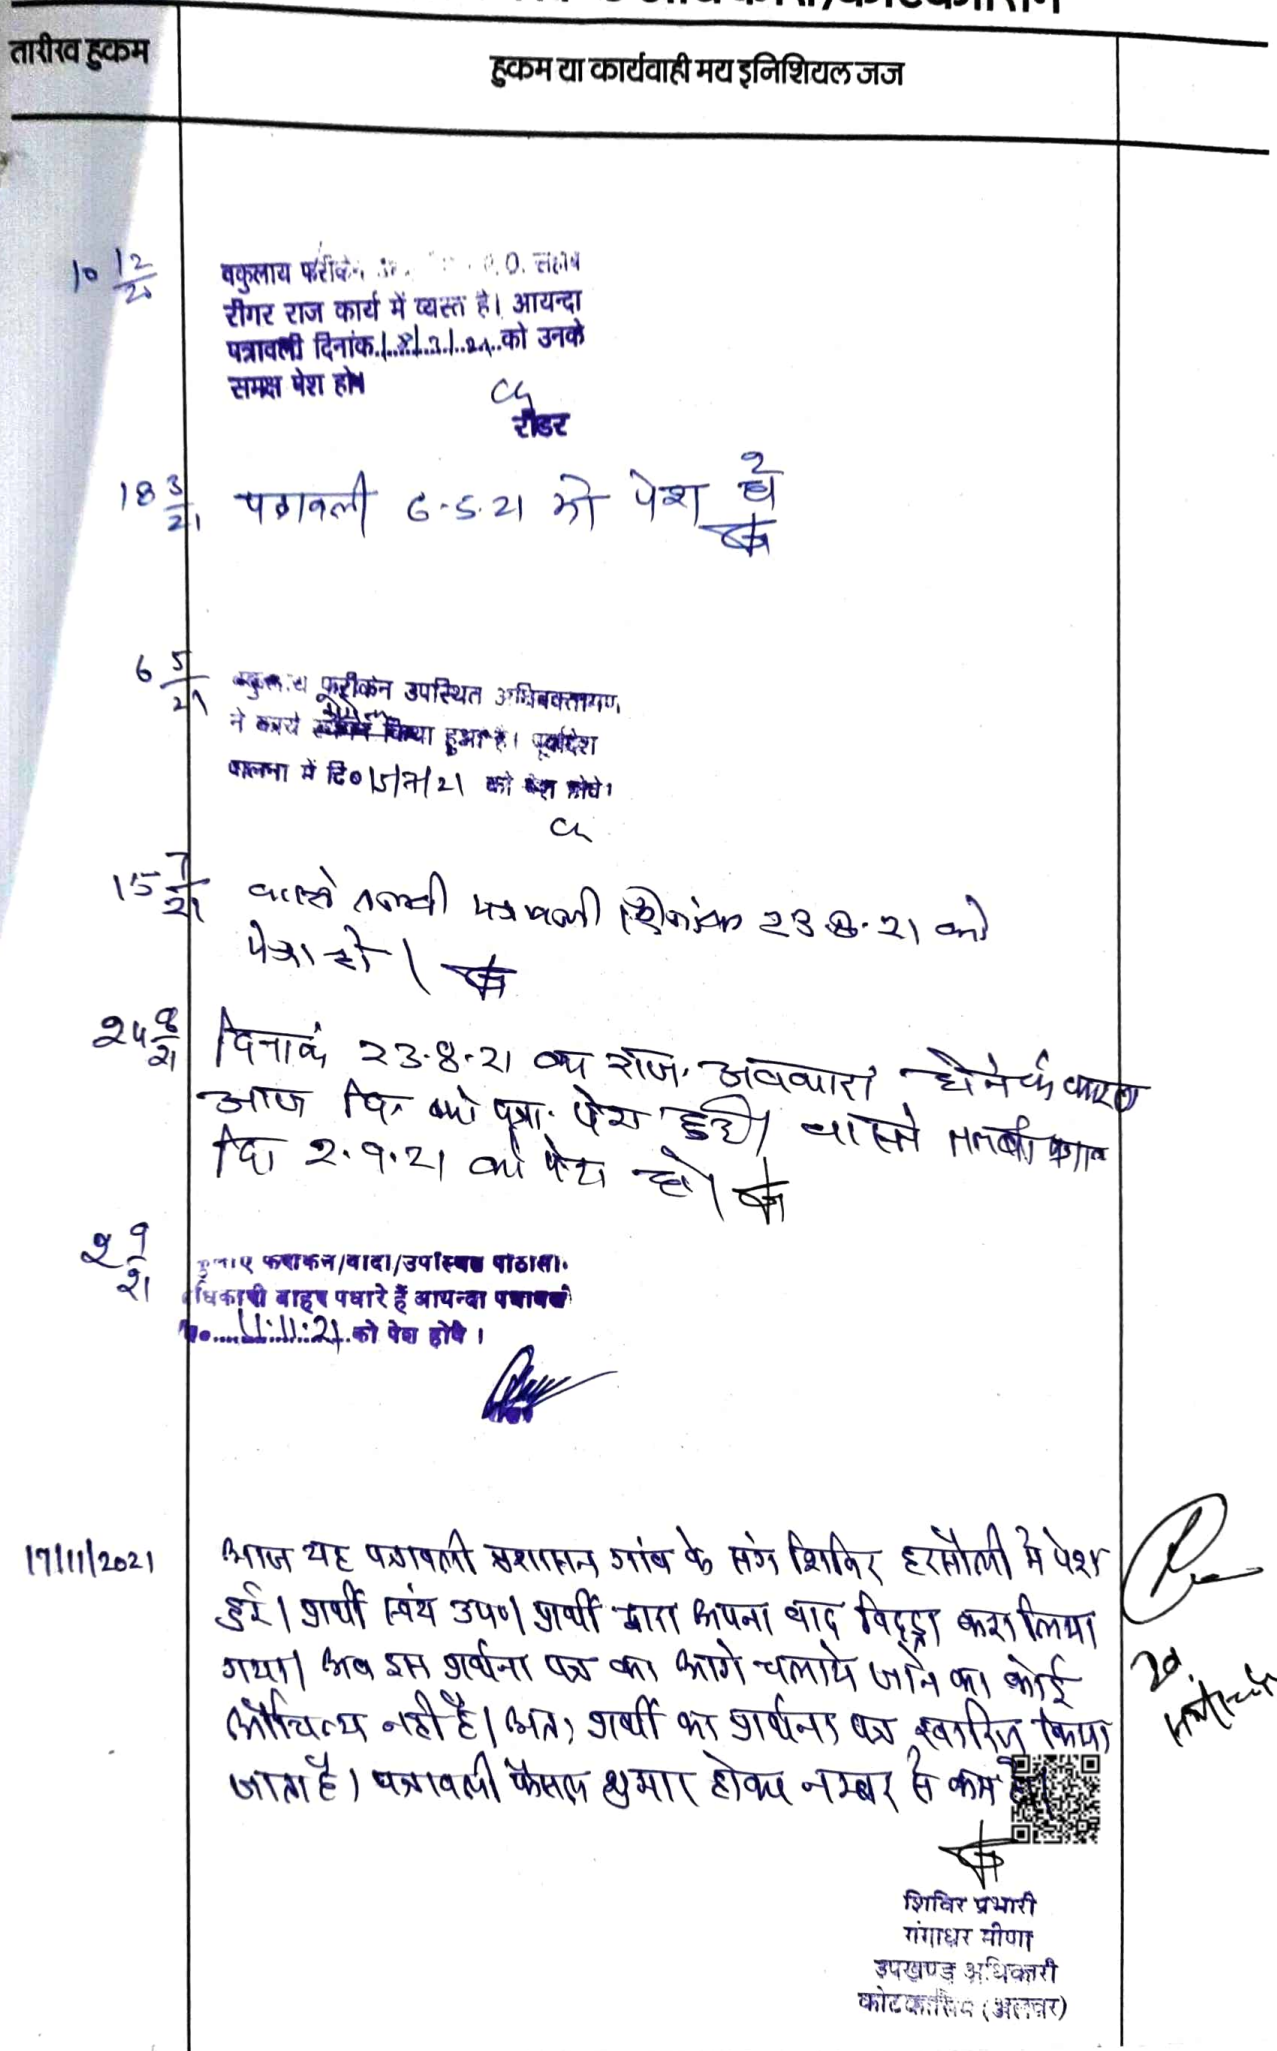 तारीख हुकम
हुकम या कार्यवाही मय इनिशियल जज
10 12/20
वकुलाय फरीकेन P.O. साहब
दीगर राज कार्य में व्यस्त है। आयन्दा
पत्रावली दिनांक 18/3/21 को उनके
समक्ष पेश हो।
रीडर
18 3/21
पत्रावली 6-5-21 को पेश हो
6 5/21
फरीकेन उपस्थित अधिवक्तागण
ने कार्य किया हुआ है। पूर्वादेश
पालना में दि० 15/7/21 को पेश होवे।
15 7/21
वास्ते तलबी पत्रावली दिनांक 23-8-21 को
पेश हो।
24 8/21
दिनांक 23-8-21 का राज. अवकाश होने के कारण
आज दि. को पत्रा. पेश हुई। वास्ते तलबी
दि 2-9-21 को पेश हो।
2 9/21
फरीकेन/वादी/उपस्थित पीठासी.
धिकारी बाहर पधारे हैं आयन्दा पत्रावली
11.11.21 को पेश होवे।
17/11/2021
आज यह पत्रावली प्रशासन गांव के संग शिविर हरसौली में पेश
हुई। प्रार्थी स्वंय उप०। प्रार्थी द्वारा अपना वाद विड्रा करा लिया
गया। अब इस प्रार्थना पत्र का आगे चलाये जाने का कोई
औचित्य नही है। अतः प्रार्थी का प्रार्थना पत्र खारिज किया
जाता है। पत्रावली फैसल शुमार होकर नम्बर से कम हो।
शिविर प्रभारी
गंगाधर मीणा
उपखण्ड अधिकारी
कोटकासिम (अलवर)